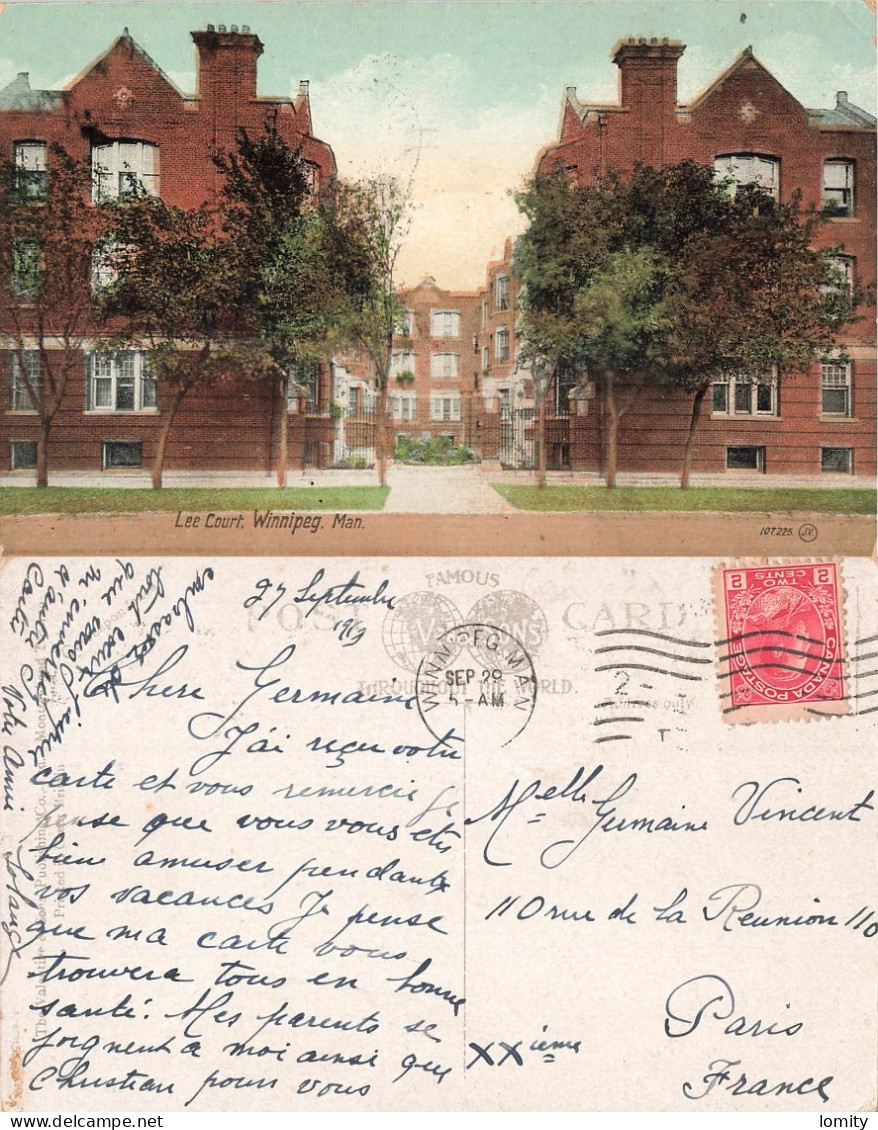 Lee Court, Winnipeg, Man.
107,225. JV
27 Septembre
1919
FAMOUS
POST CARD
VALENTINE'S
THROUGHOUT THE WORLD
WINNIPEG, MAN
SEP 29
5 - AM
2 -
CANADA POSTAGE
2 TWO CENTS 2
Chere Germaine
J'ai reçu votre
carte et vous remercie je
pense que vous vous etes
bien amuser pendante
vos vacances Je pense
que ma carte vous
trouvera tous en bonne
santé. Mes parents se
joignent à moi ainsi que
Christian pour vous
embrasser
tout coeur
que vous
m'enverrez
d'autre
Carte
Votre Amie
Melle Germaine Vincent
110 rue de la Reunion 110
Paris
XXième
France
lomity